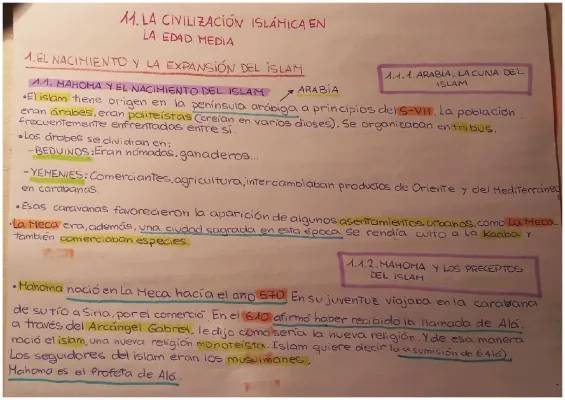 11. LA CIVILIZACIÓN ISLÁMICA EN
LA EDAD MEDIA
1. EL NACIMIENTO Y LA EXPANSIÓN DEL ISLAM
1.1. MAHOMA Y EL NACIMIENTO DEL ISLAM → ARABIA
1.1.1. ARABIA, LA CUNA DEL
ISLAM
• El islam tiene origen en la península arábiga a principios del S-VII. La población
eran árabes, eran politeístas (creían en varios dioses). Se organizaban en tribus,
frecuentemente enfrentadas entre sí.
• Los árabes se dividían en:
- BEDUINOS: Eran nómadas, ganaderos...
- YEMENÍES: Comerciantes, agricultura, intercambiaban productos de Oriente y del Mediterráneo
en carabanas.
• Esas caravanas favorecieron la aparición de algunos asentamientos urbanos, como La Meca.
• La Meca era, además, una ciudad sagrada en esta época. Se rendía culto a la Kaaba y
también comerciaban especies.
1.1.2. MAHOMA Y LOS PRECEPTOS
DEL ISLAM
• Mahoma nació en La Meca hacía el año 570. En su juventuz viajaba en la carabana
de su tío a Siria, por el comercio. En el 610 afirmó haber recibido la llamada de Alá.
a través del Arcángel Gabriel, le dijo como sería la nueva religión. Y de esa manera
nació el islam, una nueva religión monoteísta. Islam quiere decir (a sumisión de Alá).
Los seguidores del islam eran los musulmanes.
Mahoma es el Profeta de Alá.